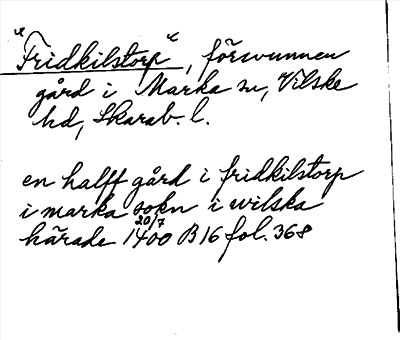 "Fridkilstorp", försvunnen
gård i Marka sn, Vilske
hd, Skarab. l.
en halff gård i fridkilstorp
i marka sokn i wilska
härade 1400 20/7 B 16 fol. 368